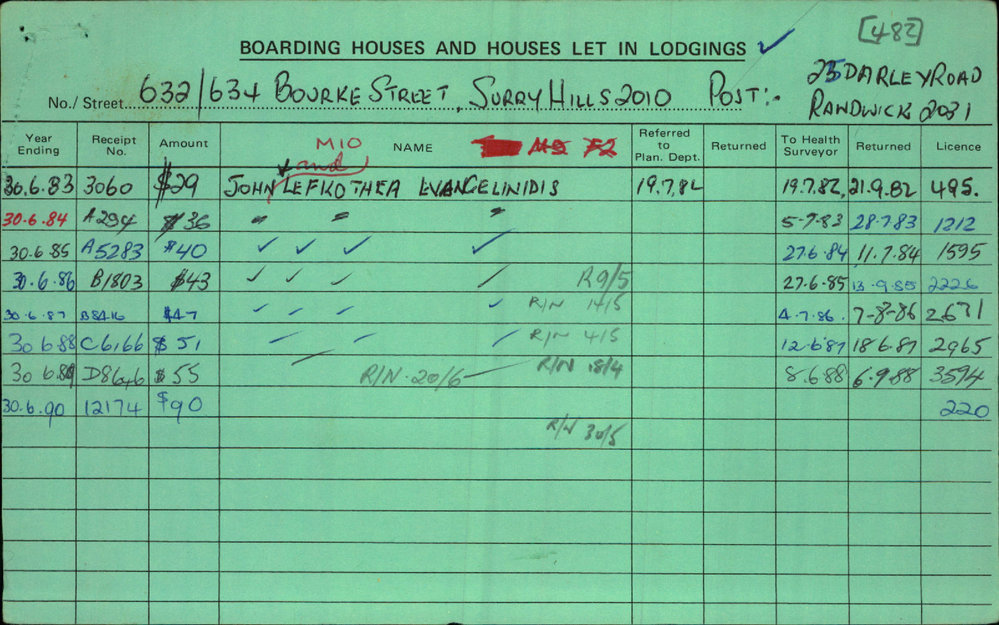 [482]
BOARDING HOUSES AND HOUSES LET IN LODGINGS ✓
No./Street 632/634 BOURKE STREET, SURRY HILLS 2010 POST:- 25 DARLEY ROAD
RANDWICK 2031
Year Ending Receipt No. Amount NAME Referred to Plan. Dept. Returned To Health Surveyor Returned Licence
M10 M5 F2
and
30.6.83 3060 $29 JOHN LEFKOTHEA EVANGELINIDIS 19.7.82 19.7.82, 21.9.82 495.
30.6.84 A294 $36 " " " 5-7-83 28.7.83 1212
30.6.85 A5283 $40 ✓ ✓ ✓ ✓ 27.6.84 11.7.84 1595
30.6.86 B1803 $43 ✓ ✓ ✓ ✓ R9/5 27.6.85 13.9.85 2226
30.6.87 B8416 $47 ✓ ✓ ✓ ✓ R/N 14/5 4.7.86. 7-8-86 2671
30 6.88 C6166 $51 R/N 4/5 12.6.87 18 6.87 2965
30 6.89 D8646 $55 R/N 20/6 R/N 18/4 8.6.88 6.9.88 3594
30.6.90 12174 $90 220
R/N 30/5